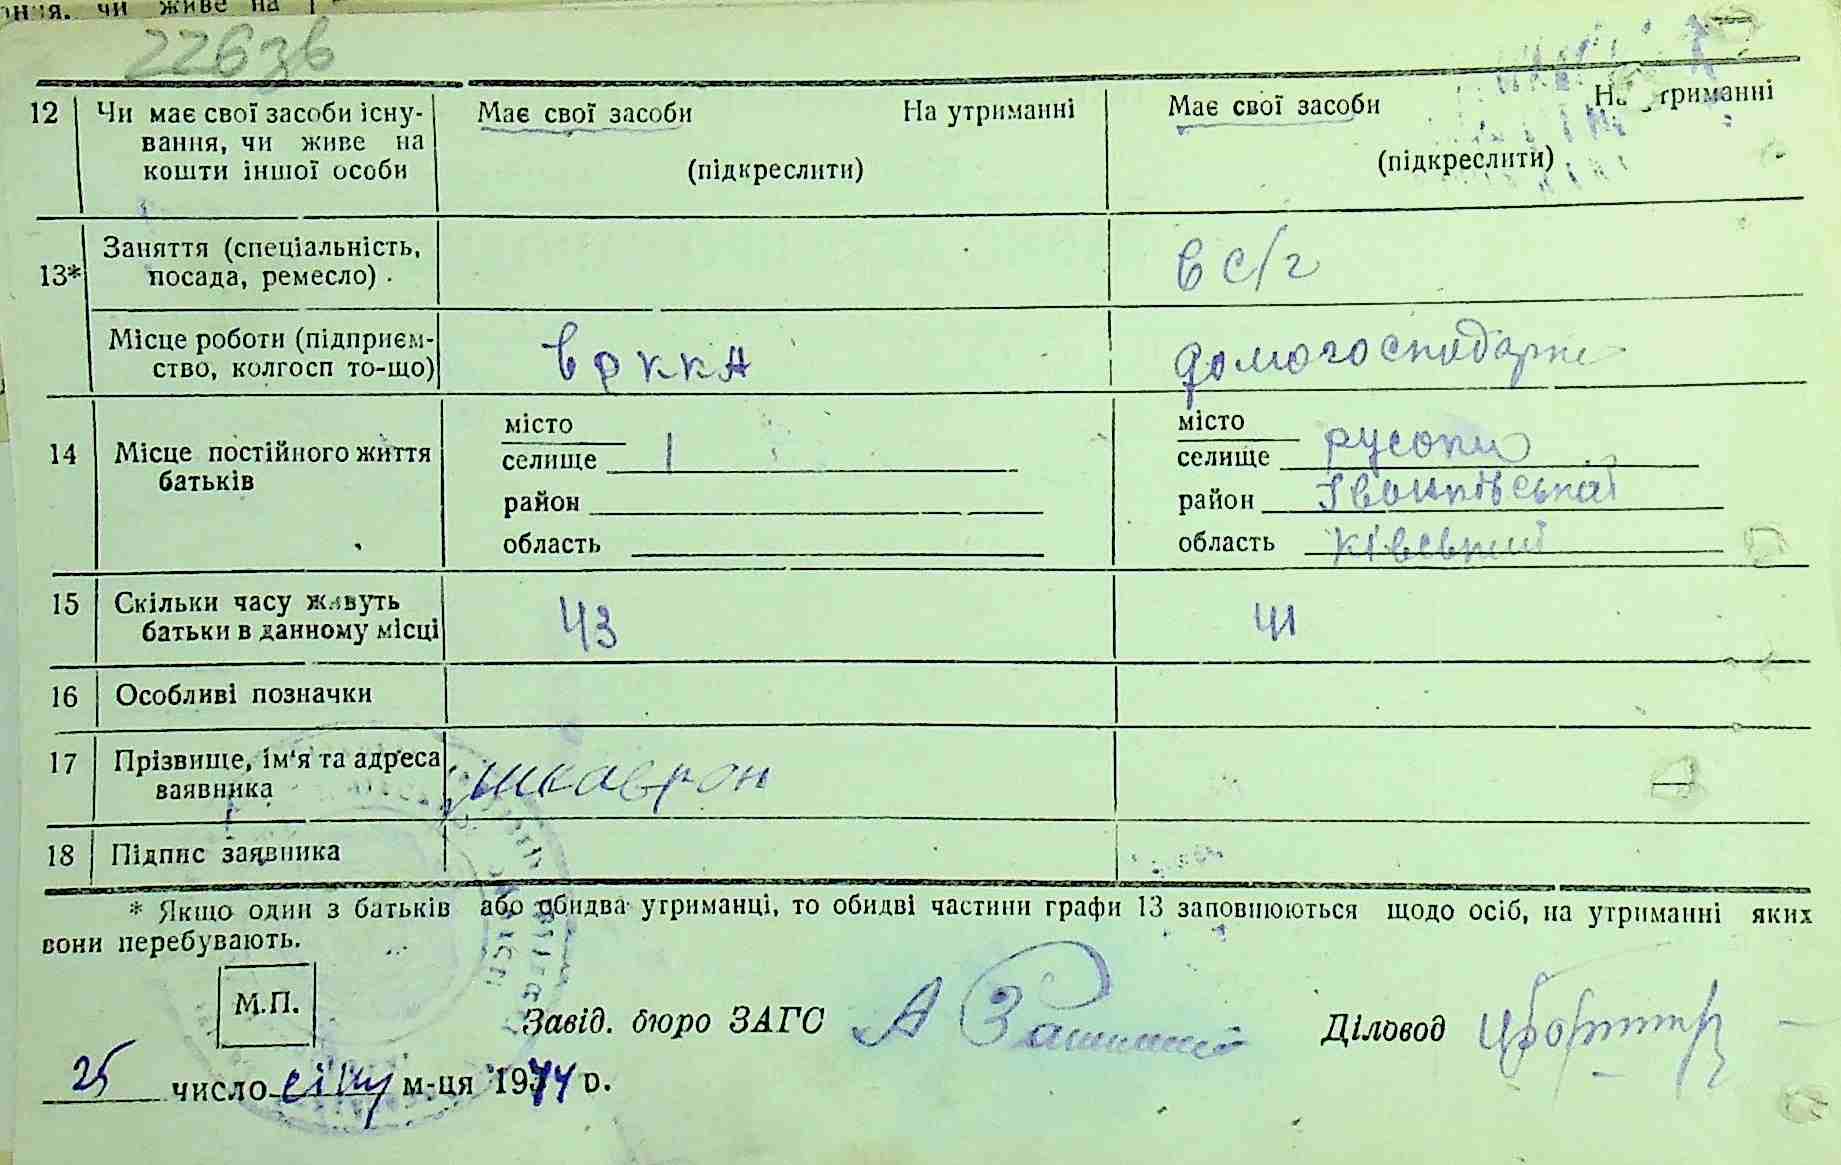 ання, чи живе на
226зв
12 Чи має свої засоби існу- Має свої засоби На утриманні Має свої засоби На утриманні
вання, чи живе на
кошти іншої особи (підкреслити) (підкреслити)
13* Заняття (спеціальність, в с/г
посада, ремесло)
Місце роботи (підприєм- в рккА домогосподарки
ство, колгосп то-що)
14 Місце постійного життя місто місто
батьків селище селище русаки
район район
область область
15 Скільки часу живуть 43 41
батьки в данному місці
16 Особливі позначки
17 Прізвище, ім'я та адреса
заявника
18 Підпис заявника
* Якщо один з батьків або обидва утриманці, то обидві частини графи 13 заповнюються щодо осіб, на утриманні яких
вони перебувають.
М.П.
Завід. бюро ЗАГС Діловод
25 число січн м-ця 1944 р.